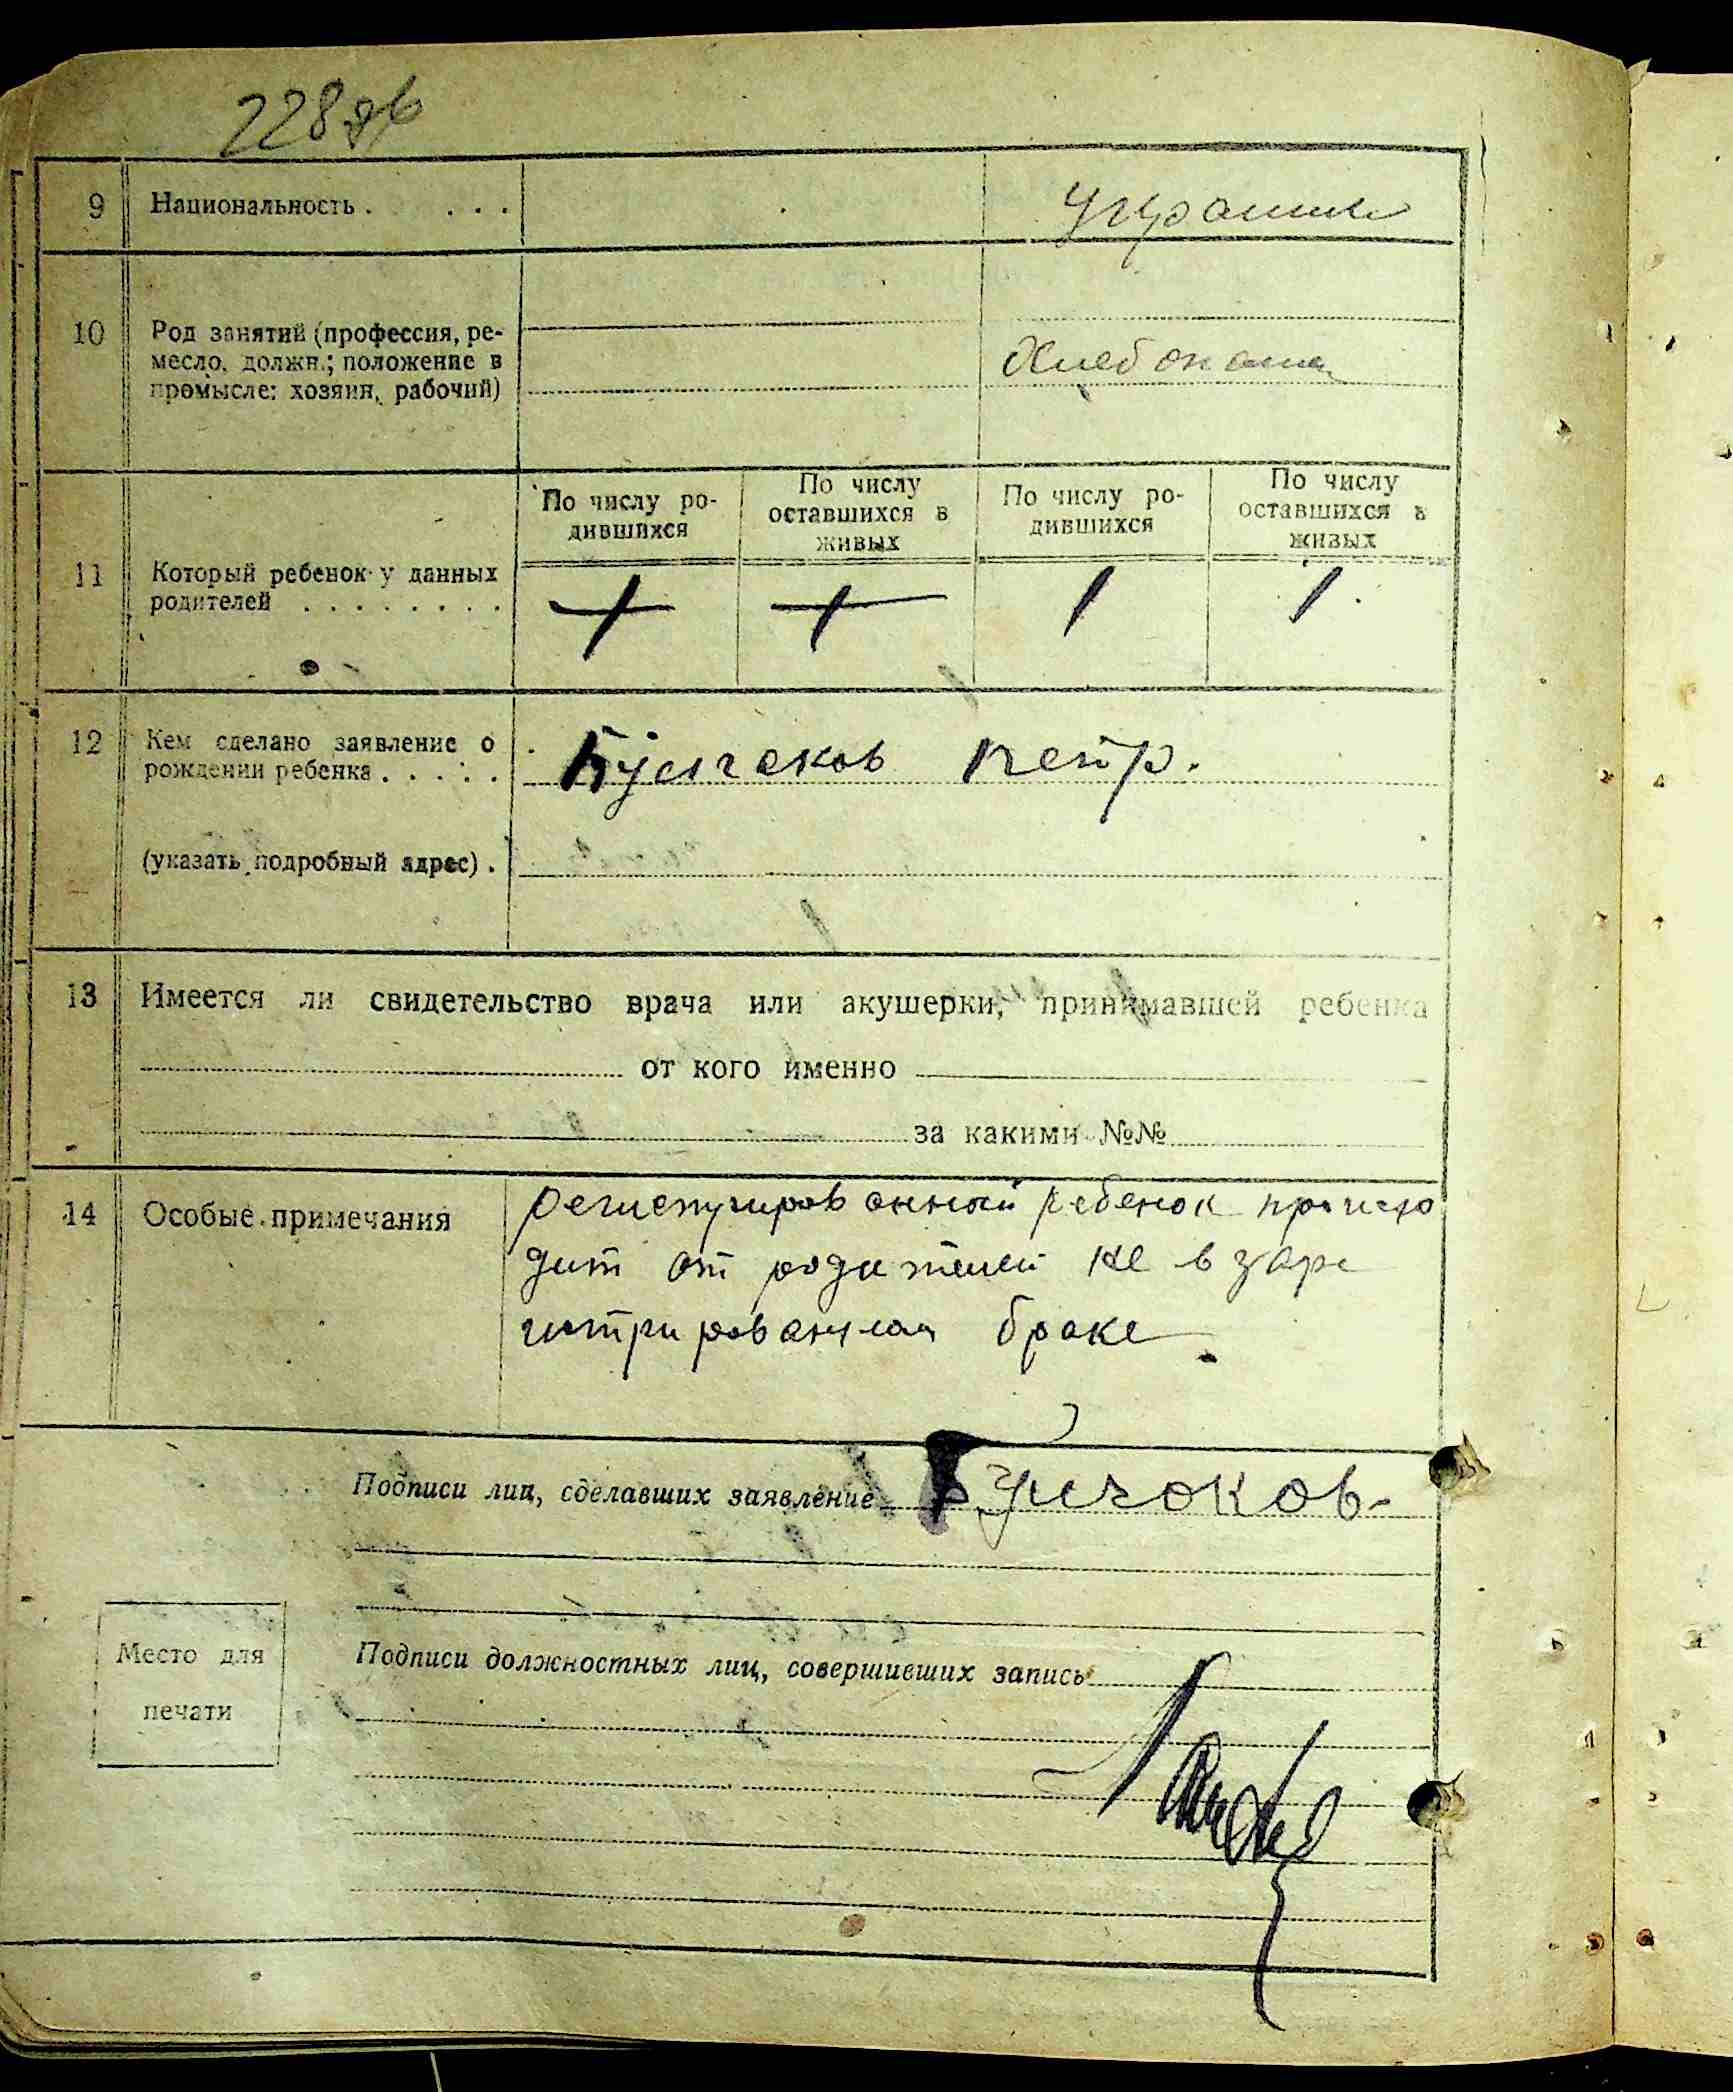 228 об
9 Национальность . . . .
Украинк
10 Род занятий (профессия, ре-
месло, должн.; положение в
промысле: хозяин, рабочий)
Хлебопаш
По числу ро-
дившихся
По числу
оставшихся в
живых
По числу ро-
дившихся
По числу
оставшихся в
живых
11 Который ребенок у данных
родителей . . . . . . . .
1 1 1 1
12 Кем сделано заявление о
рождении ребенка . . . . .
Булгаков Петр.
(указать подробный адрес) .
13 Имеется ли свидетельство врача или акушерки, принимавшей ребенка
от кого именно
за какими №№
14 Особые примечания
Регистрированный ребенок происхо
дит от родителей не в заре
гистрированном браке
Подписи лиц, сделавших заявление
Булгаков
Место для
печати
Подписи должностных лиц, совершивших запись